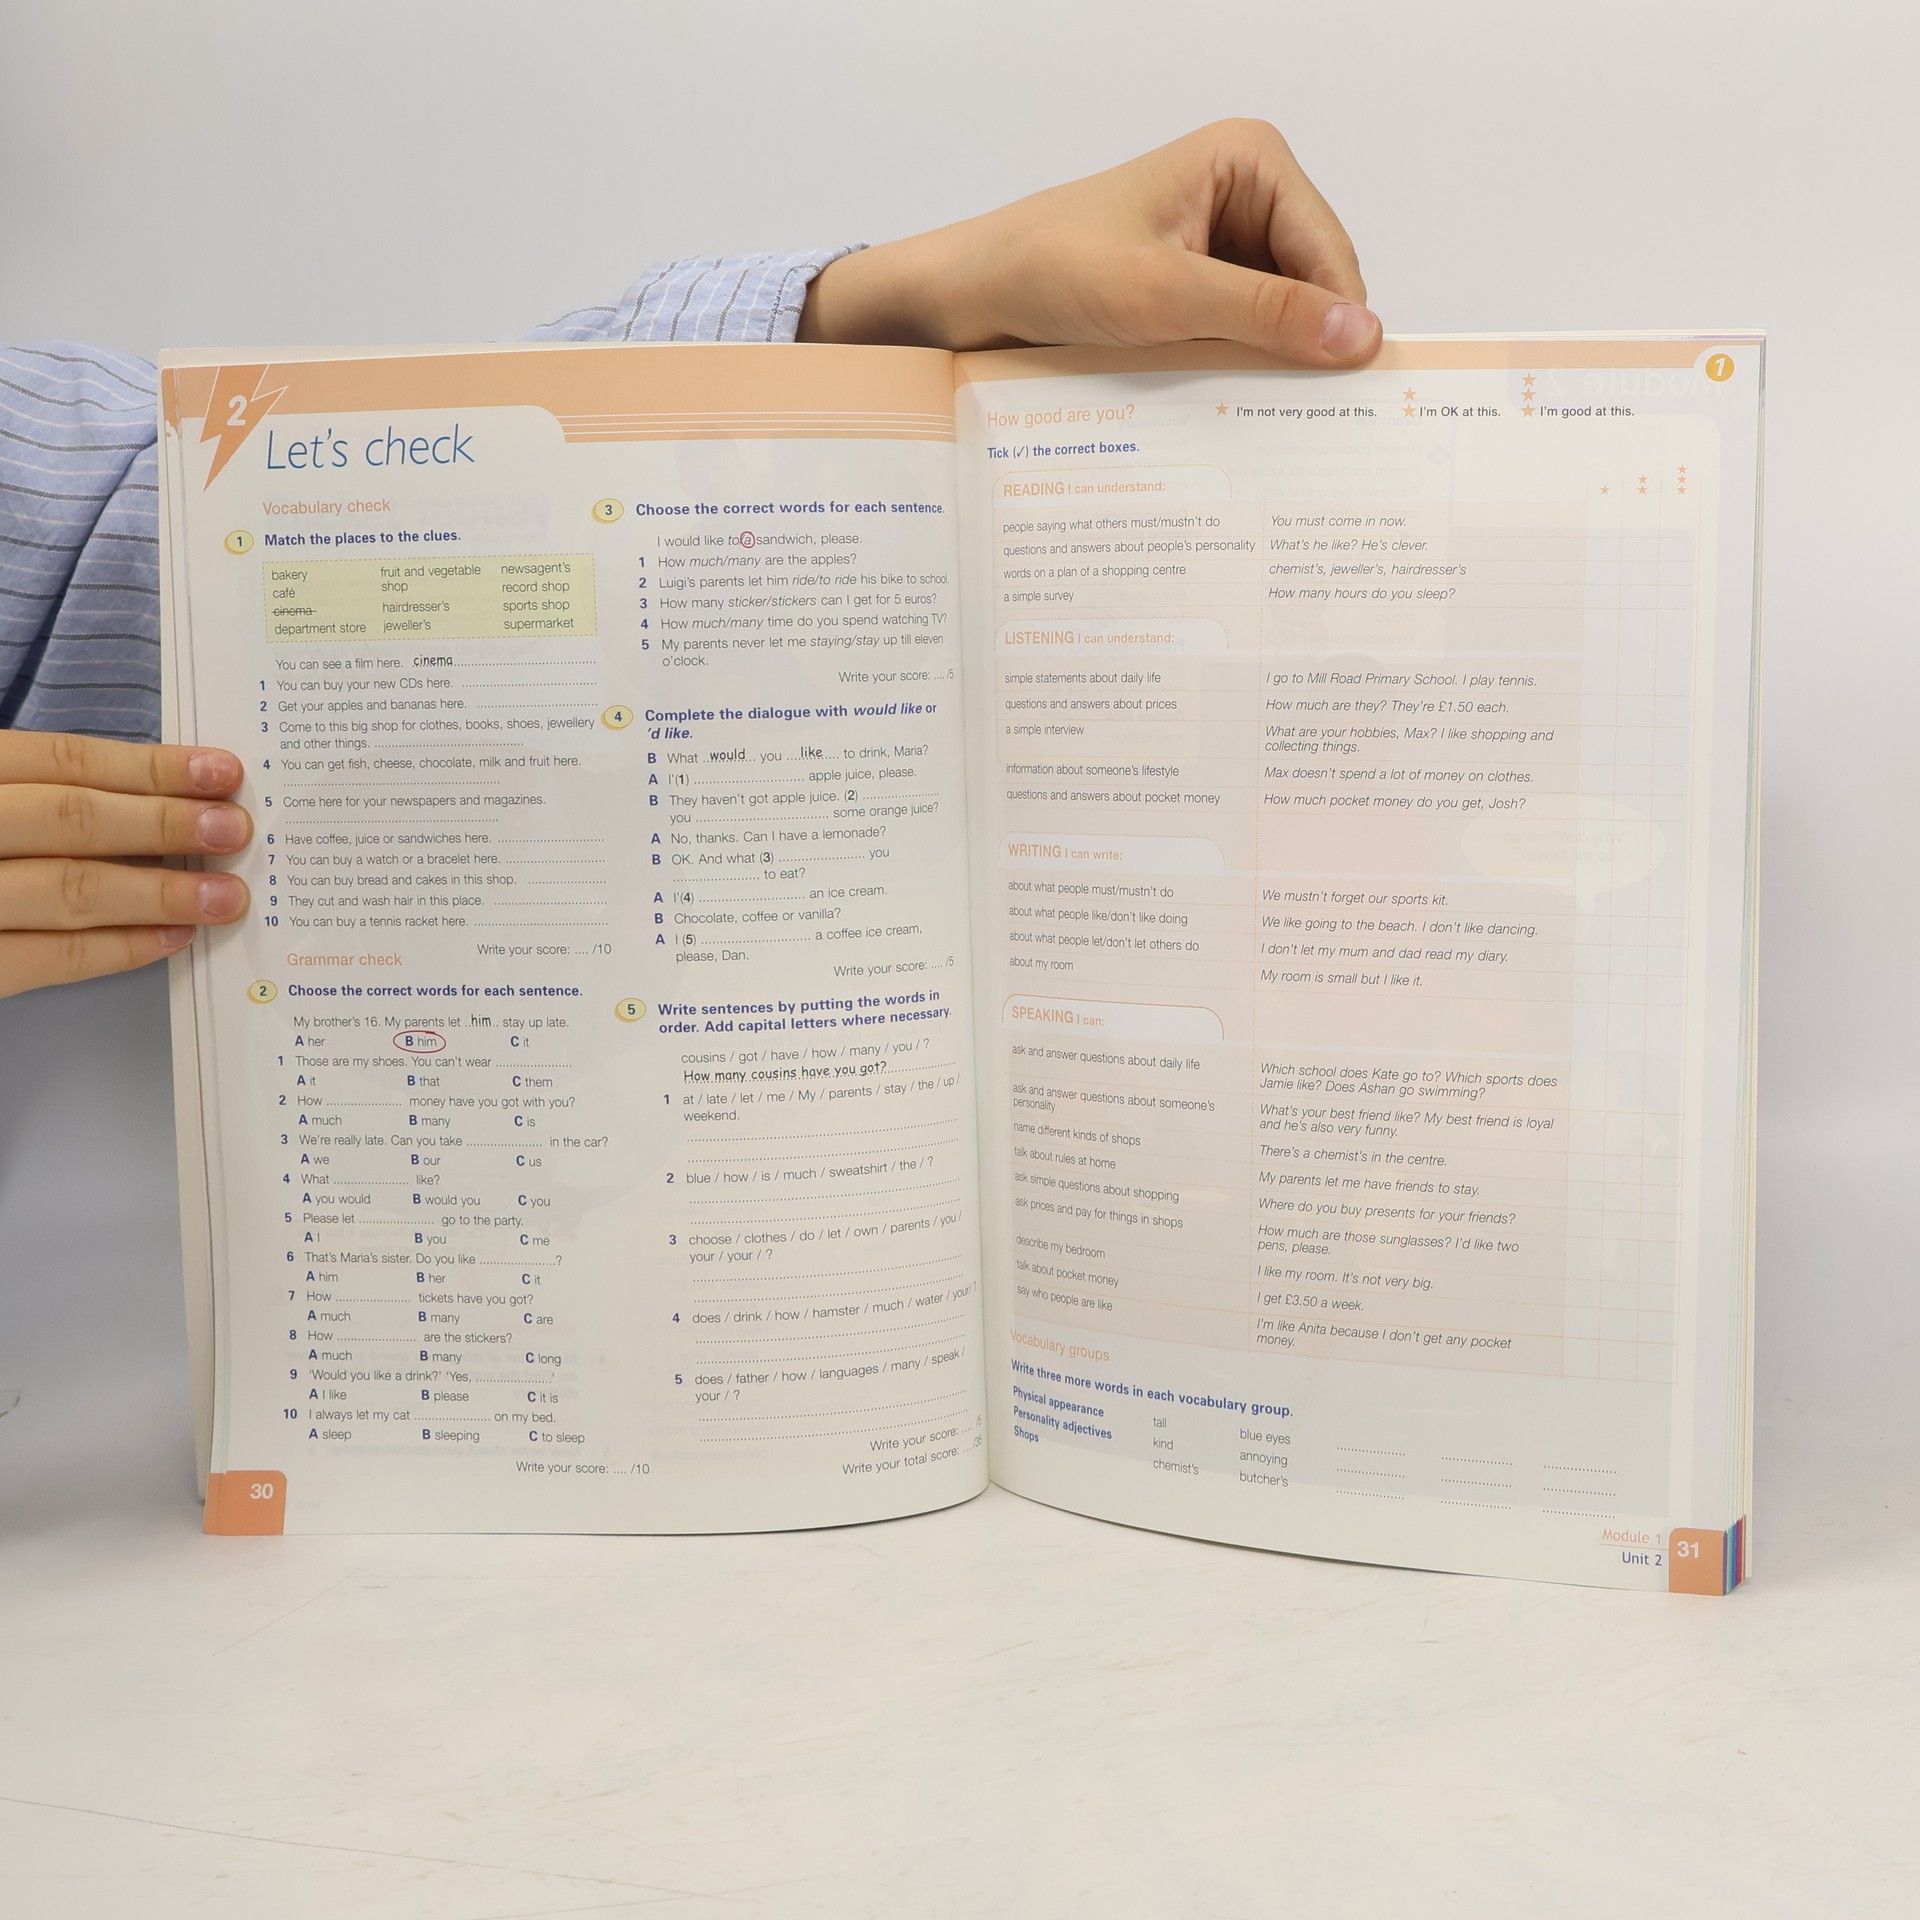 2
Let's check
Vocabulary check
1 Match the places to the clues.
bakery
café
cinema
department store
fruit and vegetable
shop
hairdresser's
jeweller's
newsagent's
record shop
sports shop
supermarket
You can see a film here. cinema
1 You can buy your new CDs here. ....................
2 Get your apples and bananas here. ....................
3 Come to this big shop for clothes, books, shoes, jewellery
and other things. ....................
4 You can get fish, cheese, chocolate, milk and fruit here.
....................
5 Come here for your newspapers and magazines.
....................
6 Have coffee, juice or sandwiches here. ....................
7 You can buy a watch or a bracelet here. ....................
8 You can buy bread and cakes in this shop. ....................
9 They cut and wash hair in this place. ....................
10 You can buy a tennis racket here. ....................
Write your score: .... /10
Grammar check
2 Choose the correct words for each sentence.
My brother's 16. My parents let ..him.. stay up late.
A her B him C it
1 Those are my shoes. You can't wear ....................
A it B that C them
2 How .................... money have you got with you?
A much B many C is
3 We're really late. Can you take .................... in the car?
A we B our C us
4 What .................... like?
A you would B would you C you
5 Please let .................... go to the party.
A I B you C me
6 That's Maria's sister. Do you like ....................?
A him B her C it
7 How .................... tickets have you got?
A much B many C are
8 How .................... are the stickers?
A much B many C long
9 'Would you like a drink?' 'Yes, ....................'
A I like B please C it is
10 I always let my cat .................... on my bed.
A sleep B sleeping C to sleep
Write your score: .... /10
30
3 Choose the correct words for each sentence.
I would like to/a sandwich, please.
1 How much/many are the apples?
2 Luigi's parents let him ride/to ride his bike to school.
3 How many sticker/stickers can I get for 5 euros?
4 How much/many time do you spend watching TV?
5 My parents never let me staying/stay up till eleven
o'clock.
Write your score: .... /5
4 Complete the dialogue with would like or
'd like.
B What ..would.. you ....like.... to drink, Maria?
A I'(1) .................... apple juice, please.
B They haven't got apple juice. (2) ....................
you .................... some orange juice?
A No, thanks. Can I have a lemonade?
B OK. And what (3) .................... you
.................... to eat?
A I'(4) .................... an ice cream.
B Chocolate, coffee or vanilla?
A I (5) .................... a coffee ice cream,
please, Dan.
Write your score: .... /5
5 Write sentences by putting the words in
order. Add capital letters where necessary.
cousins / got / have / how / many / you / ?
How many cousins have you got?
1 at / late / let / me / My / parents / stay / the / up /
weekend.
2 blue / how / is / much / sweatshirt / the / ?
3 choose / clothes / do / let / own / parents / you /
your / your / ?
4 does / drink / how / hamster / much / water / your / ?
5 does / father / how / languages / many / speak /
your / ?
Write your score: .... /5
Write your total score: .... /35
1
How good are you?
★ I'm not very good at this. ★★ I'm OK at this. ★★★ I'm good at this.
Tick (✓) the correct boxes.
READING I can understand:
people saying what others must/mustn't do You must come in now.
questions and answers about people's personality What's he like? He's clever.
words on a plan of a shopping centre chemist's, jeweller's, hairdresser's
a simple survey How many hours do you sleep?
LISTENING I can understand:
simple statements about daily life I go to Mill Road Primary School. I play tennis.
questions and answers about prices How much are they? They're £1.50 each.
a simple interview What are your hobbies, Max? I like shopping and
collecting things.
information about someone's lifestyle Max doesn't spend a lot of money on clothes.
questions and answers about pocket money How much pocket money do you get, Josh?
WRITING I can write:
about what people must/mustn't do We mustn't forget our sports kit.
about what people like/don't like doing We like going to the beach. I don't like dancing.
about what people let/don't let others do I don't let my mum and dad read my diary.
about my room My room is small but I like it.
SPEAKING I can:
ask and answer questions about daily life Which school does Kate go to? Which sports does
Jamie like? Does Ashan go swimming?
ask and answer questions about someone's
personality What's your best friend like? My best friend is loyal
and he's also very funny.
name different kinds of shops There's a chemist's in the centre.
talk about rules at home My parents let me have friends to stay.
ask simple questions about shopping Where do you buy presents for your friends?
ask prices and pay for things in shops How much are those sunglasses? I'd like two
pens, please.
describe my bedroom I like my room. It's not very big.
talk about pocket money I get £3.50 a week.
say who people are like I'm like Anita because I don't get any pocket
money.
Vocabulary groups
Write three more words in each vocabulary group.
Physical appearance tall blue eyes
Personality adjectives kind annoying
Shops chemist's butcher's
Module 1
Unit 2
31